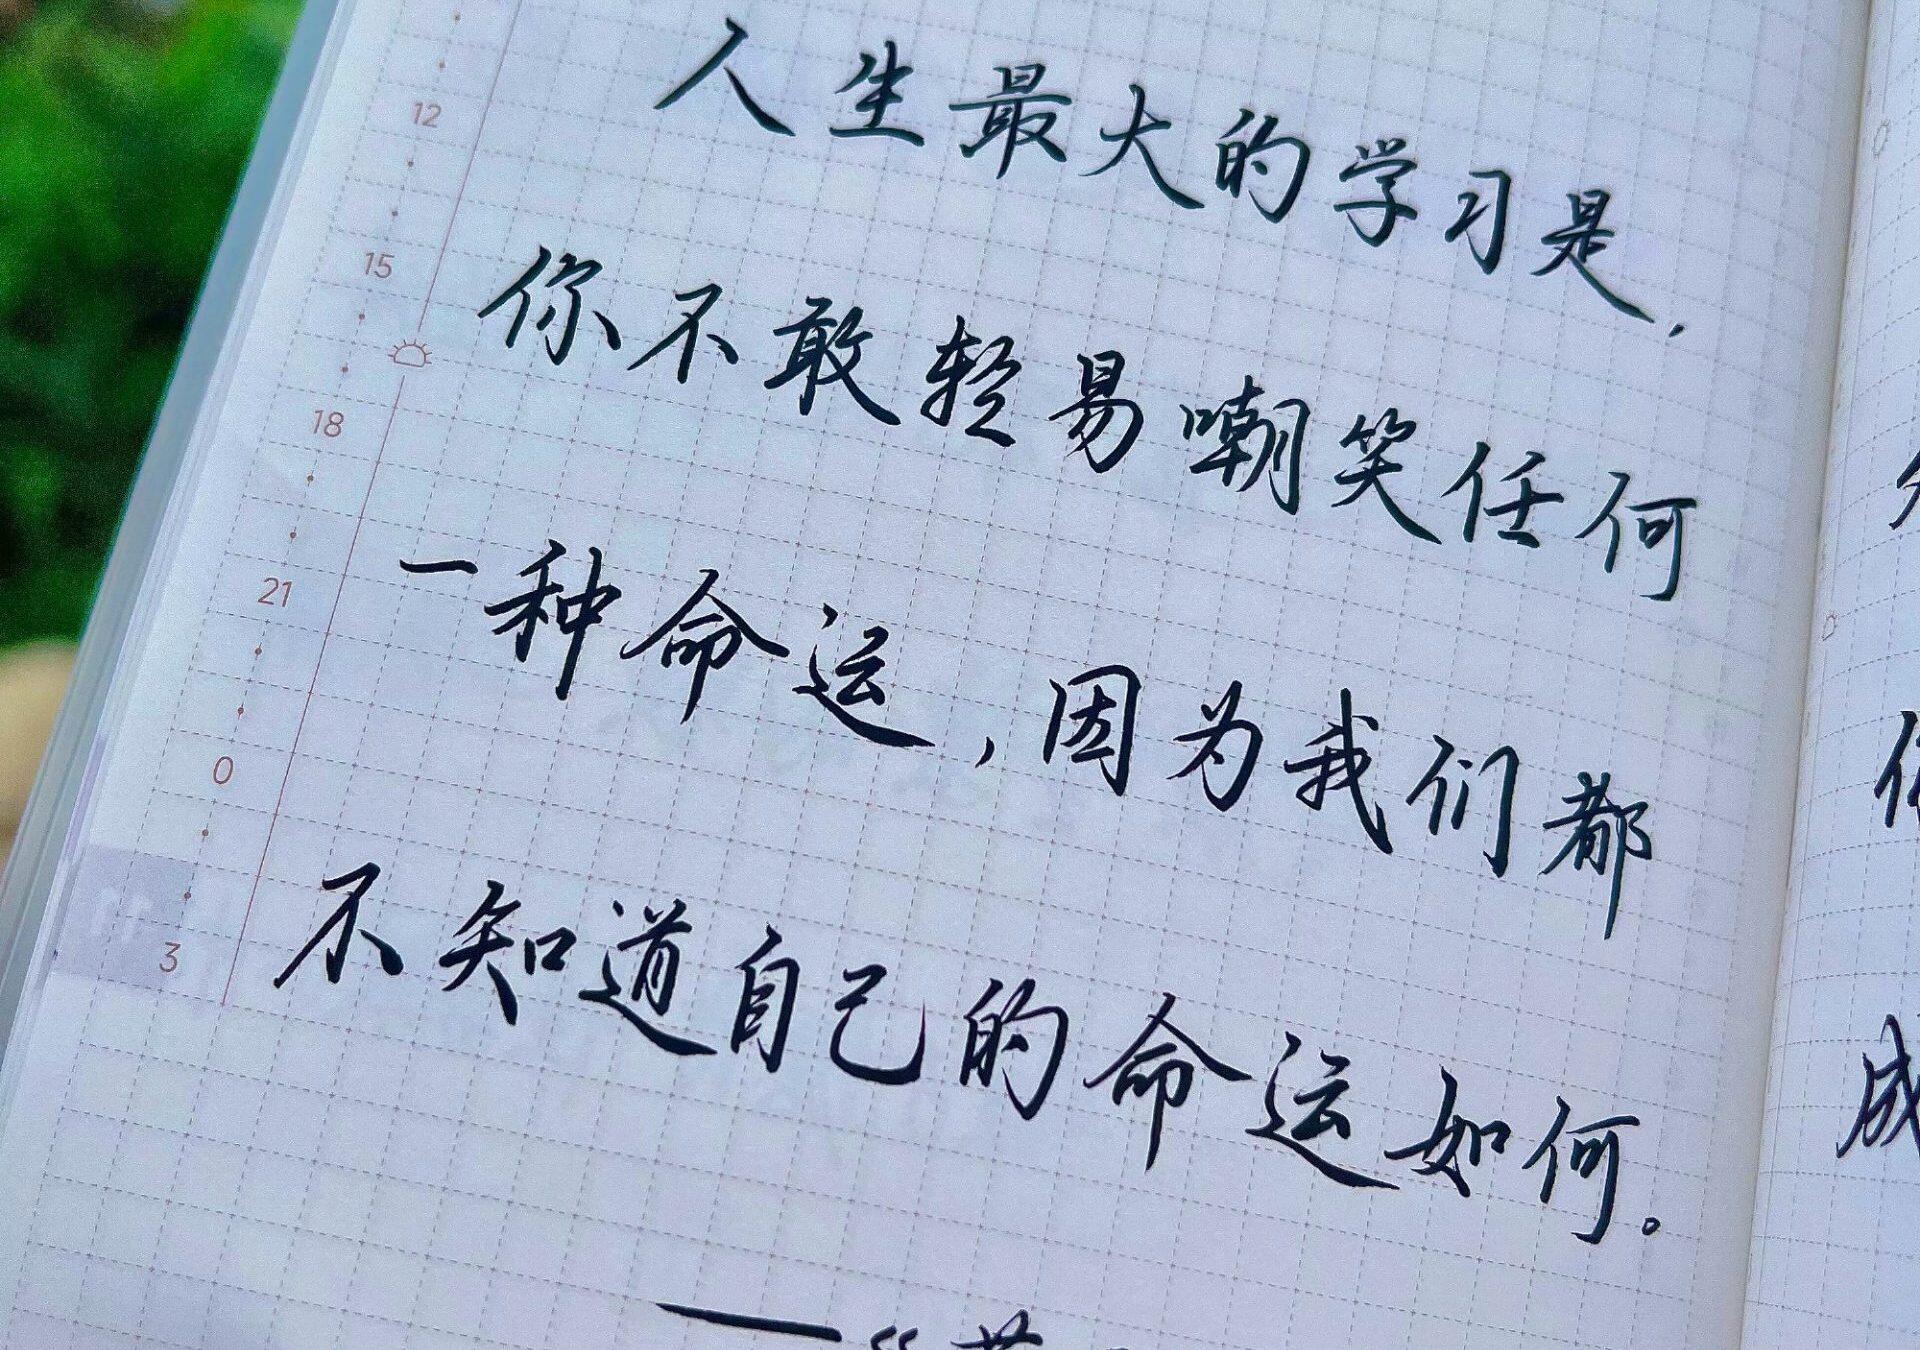 人生最大的学习是，
你不敢轻易嘲笑任何
一种命运，因为我们都
不知道自己的命运如何。
——《
12
15
18
21
0
3
成